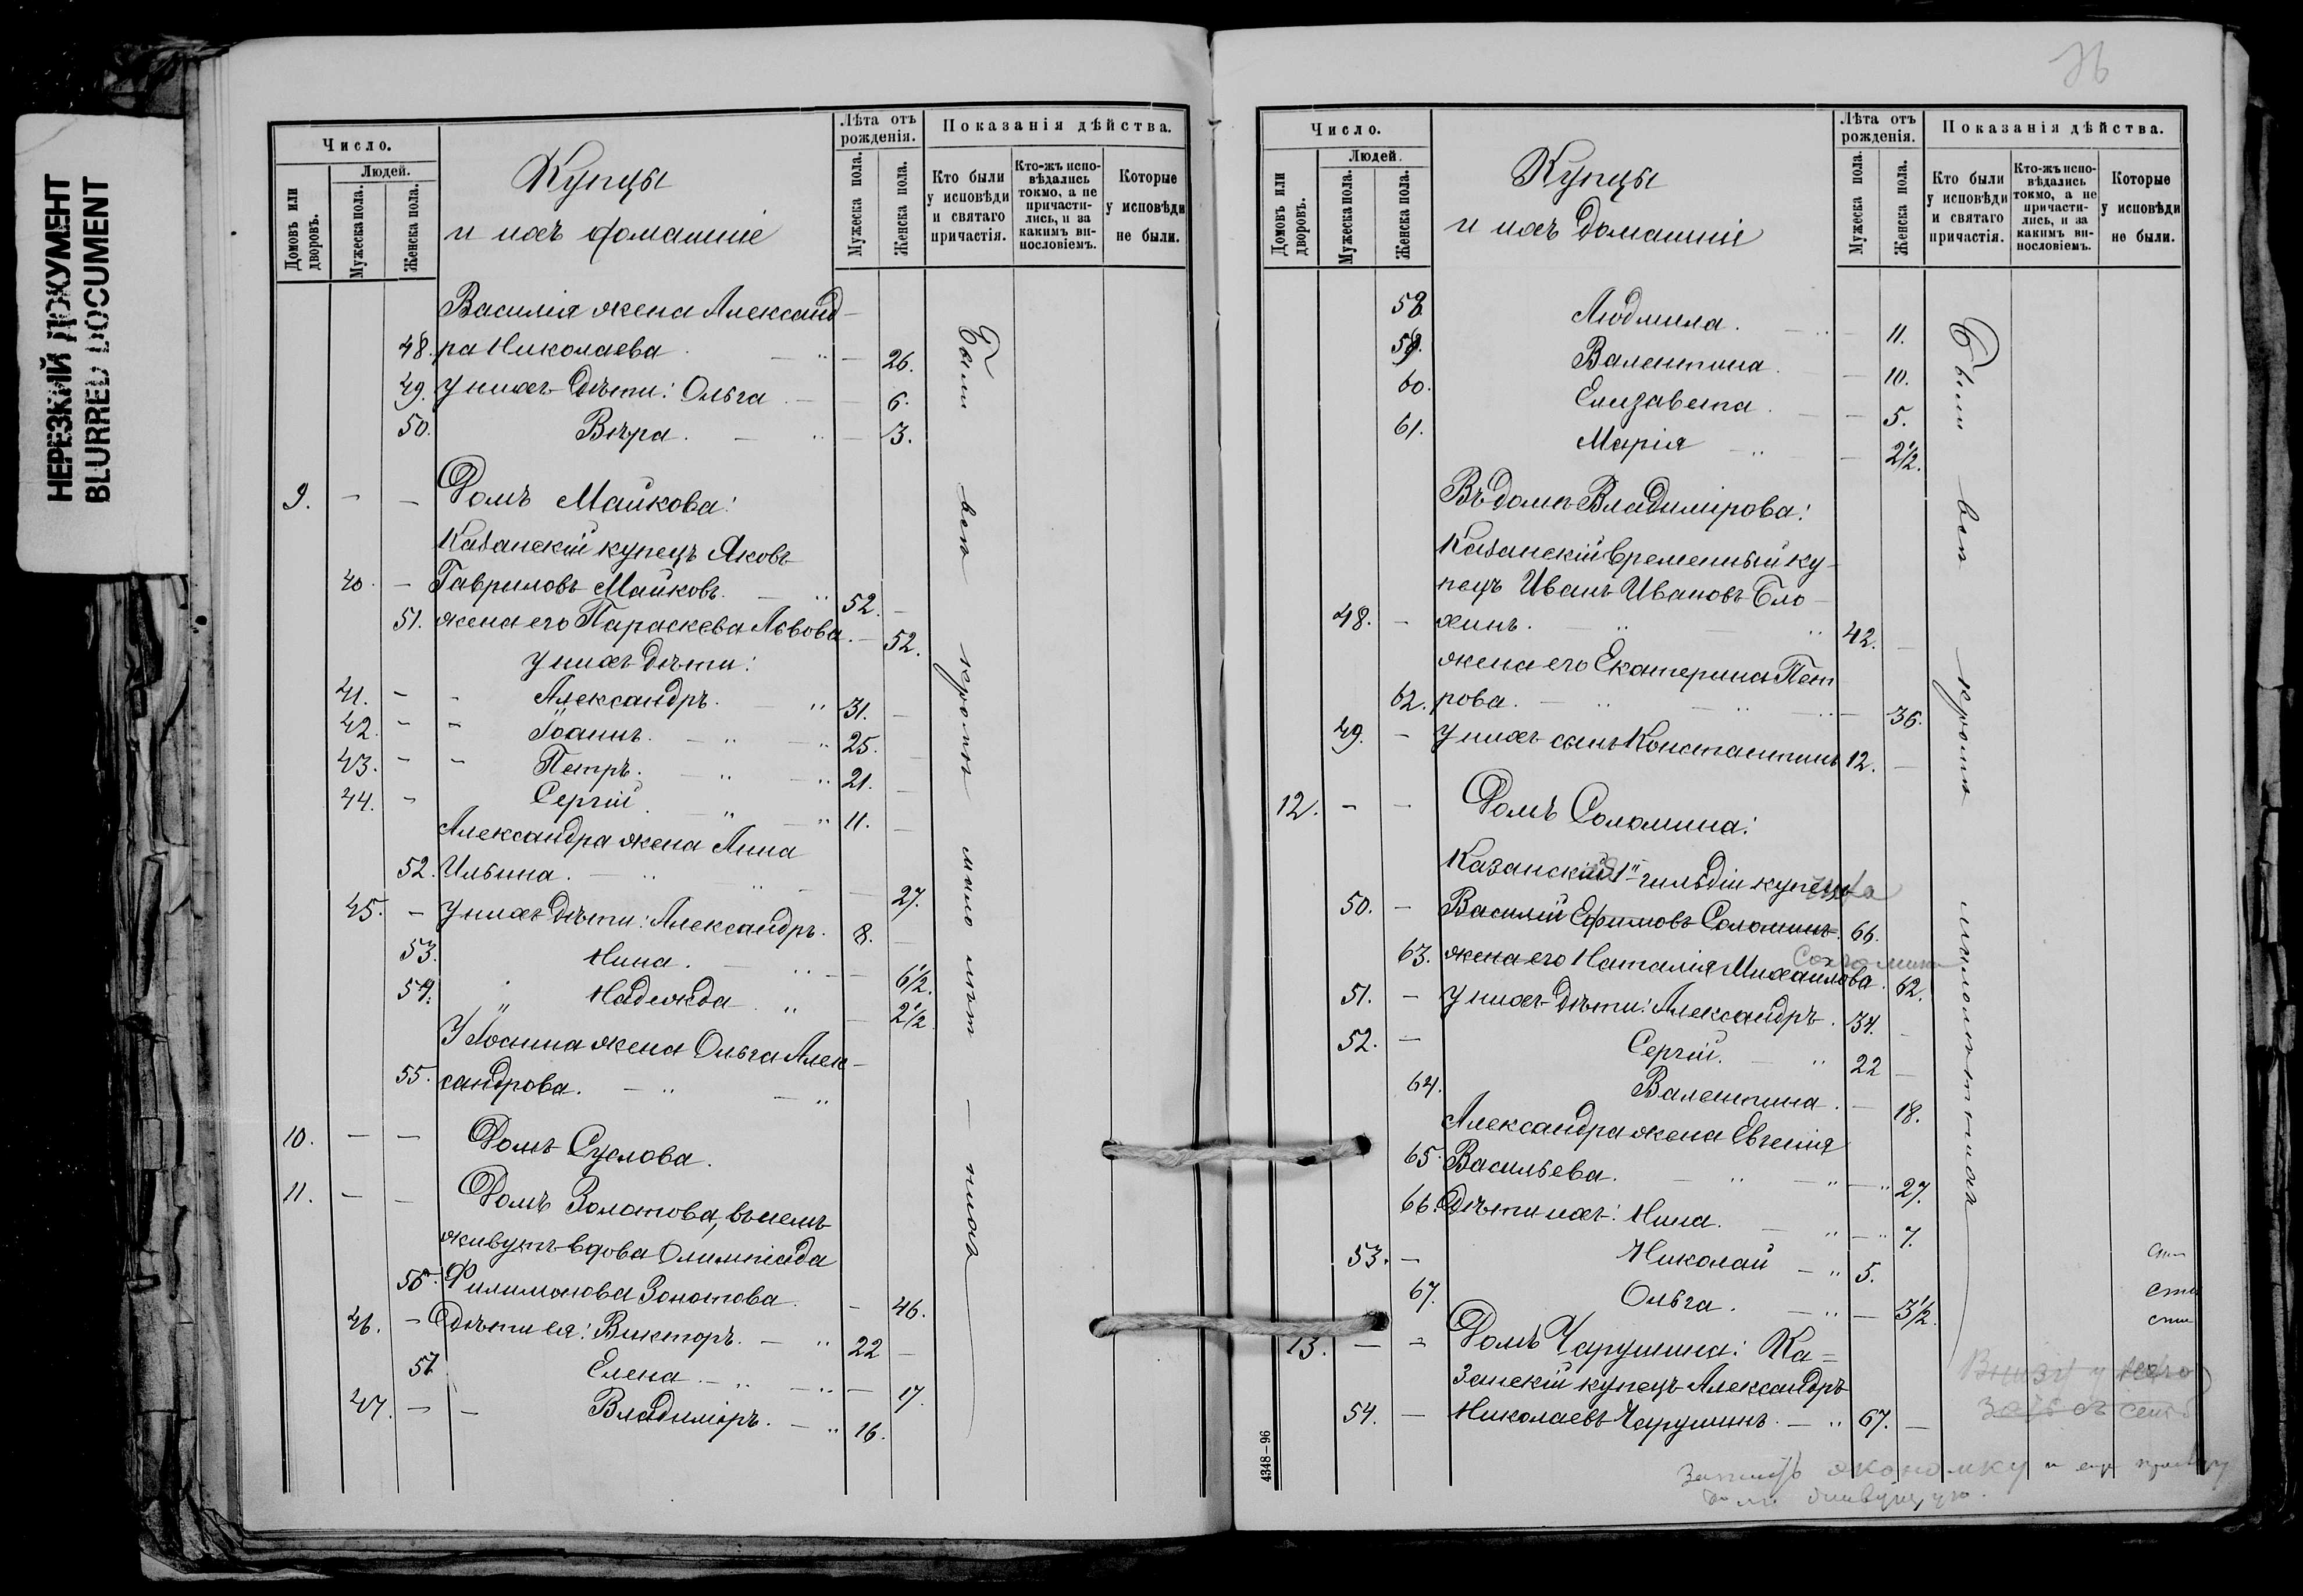 НЕРЕЗКИЙ ДОКУМЕНТ
BLURRED DOCUMENT
Число.
Людей.
Домовъ или дворовъ.
Мужеска пола.
Женска пола.
Купцы
и ихъ домашніе
Лѣта отъ рожденія.
Мужеска пола.
Женска пола.
Показанія дѣйства.
Кто были у исповѣди и святаго причастія.
Кто-жъ исповѣдались токмо, а не причастились, и за какимъ винословіемъ.
Которые у исповѣди не были.
Василія жена Александ-
48. ра Николаева. 26.
49. У нихъ дѣти: Ольга 6.
50. Вѣра. 3.
9. — — Домъ Майкова:
Казанскій купецъ Яковъ
40. — Гавриловъ Майковъ. 52. —
51. жена его Параскева Львова. — 52.
У нихъ дѣти:
41. — — Александръ. 31. —
42. — — Іоаннъ. 25. —
43. — — Петръ. 21. —
44. — Сергій 11. —
Александра жена Анна
52. Ильина. 27.
45. — У нихъ дѣти: Александръ. 8. —
53. Нина. 6½.
54. Надежда 2½
У Іоанна жена Ольга Алек-
55. сандрова.
10. — — Домъ Суслова.
11. — — Домъ Золотова, въ немъ
живутъ вдова Олимпіада
56. Филимонова Золотова. — 46.
46. — Дѣти ея: Викторъ. 22 —
57 Елена 17.
47. — — Владиміръ. 16.
Были всѣ кромѣ мало лѣт — нихъ
Число.
Людей.
Домовъ или дворовъ.
Мужеска пола.
Женска пола.
Купцы
и ихъ домашніе
Лѣта отъ рожденія.
Мужеска пола.
Женска пола.
Показанія дѣйства.
Кто были у исповѣди и святаго причастія.
Кто-жъ исповѣдались токмо, а не причастились, и за какимъ винословіемъ.
Которые у исповѣди не были.
58. Людмила. 11.
59. Валентина 10.
60. Елизавета. 5.
61. Марія 2½.
Въ домѣ Владимірова:
Казанскій временный ку-
пецъ Иванъ Ивановъ Бло-
48. — хинъ. 42. —
жена его Екатерина Пет
62. рова. 36.
49. — У нихъ сынъ Константинъ 12. —
12. — — Домъ Соломина:
Казанскій 1й гильдіи купецъ
50. — Василій Ефимовъ Соломинъ. 66.
63. жена его Наталія Михаилова. 62.
51. — У нихъ дѣти: Александръ. 34. —
52. — Сергій. 22 —
64. Валентина. — 18.
Александра жена Евгенія
65. Васильева. 27.
66. Дѣти ихъ: Нина. 7.
53. — Николай 5.
67. Ольга. 3½.
13. — — Домъ Чарушина: Ка-
занскій купецъ Александръ
54. — Николаевъ Чарушинъ. 67. —
Были всѣ кромѣ малолѣтнихъ
4348—96